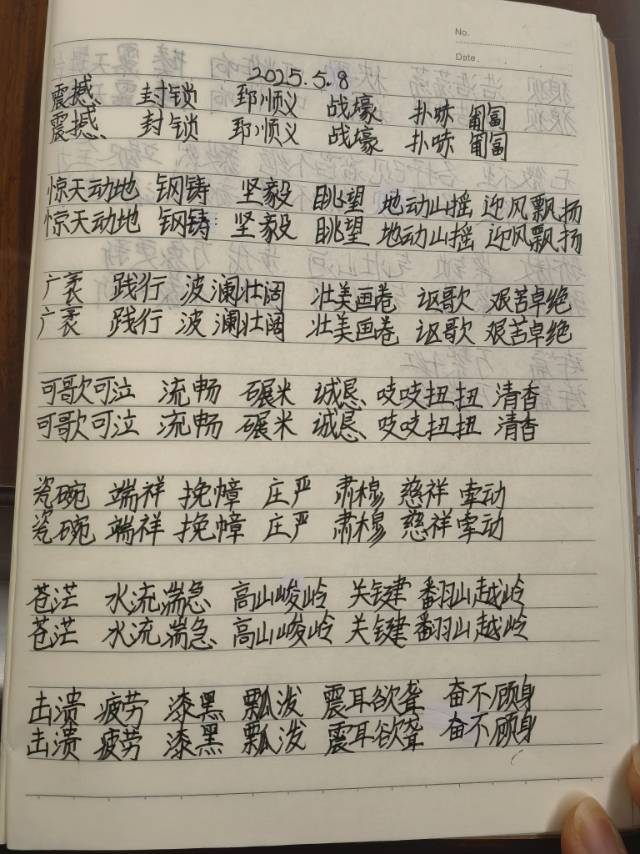 No.
Date
2025.5.8
震撼 封锁 郅顺义 战壕 扑哧 匍匐
震撼 封锁 郅顺义 战壕 扑哧 匍匐
惊天动地 钢铸 坚毅 眺望 地动山摇 迎风飘扬
惊天动地 钢铸 坚毅 眺望 地动山摇 迎风飘扬
广袤 践行 波澜壮阔 壮美画卷 讴歌 艰苦卓绝
广袤 践行 波澜壮阔 壮美画卷 讴歌 艰苦卓绝
可歌可泣 流畅 碾米 诚恳 吱吱扭扭 清香
可歌可泣 流畅 碾米 诚恳 吱吱扭扭 清香
瓷碗 端祥 挽幛 庄严 肃穆 慈祥 牵动
瓷碗 端祥 挽幛 庄严 肃穆 慈祥 牵动
苍茫 水流湍急 高山峻岭 关键 翻山越岭
苍茫 水流湍急 高山峻岭 关键 翻山越岭
击溃 疲劳 漆黑 瓢泼 震耳欲聋 奋不顾身
击溃 疲劳 漆黑 瓢泼 震耳欲聋 奋不顾身